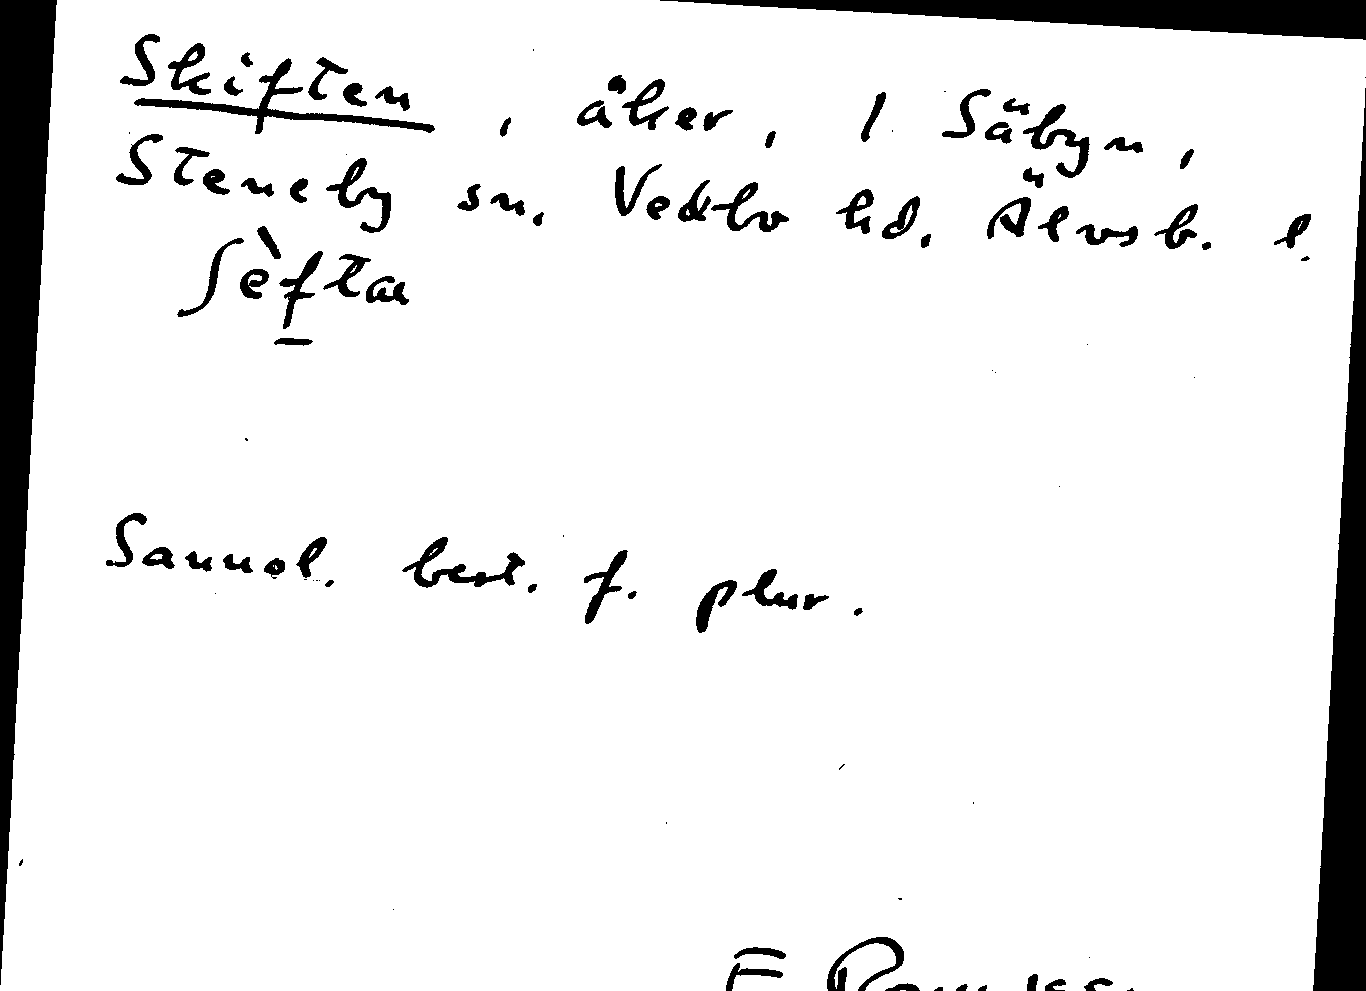 Skiften, åker, 1 Säbyn,
Steneby sn. Vedbo hd. Älvsb. l.
ʃèftaɳ
Sannol. best. f. plur.